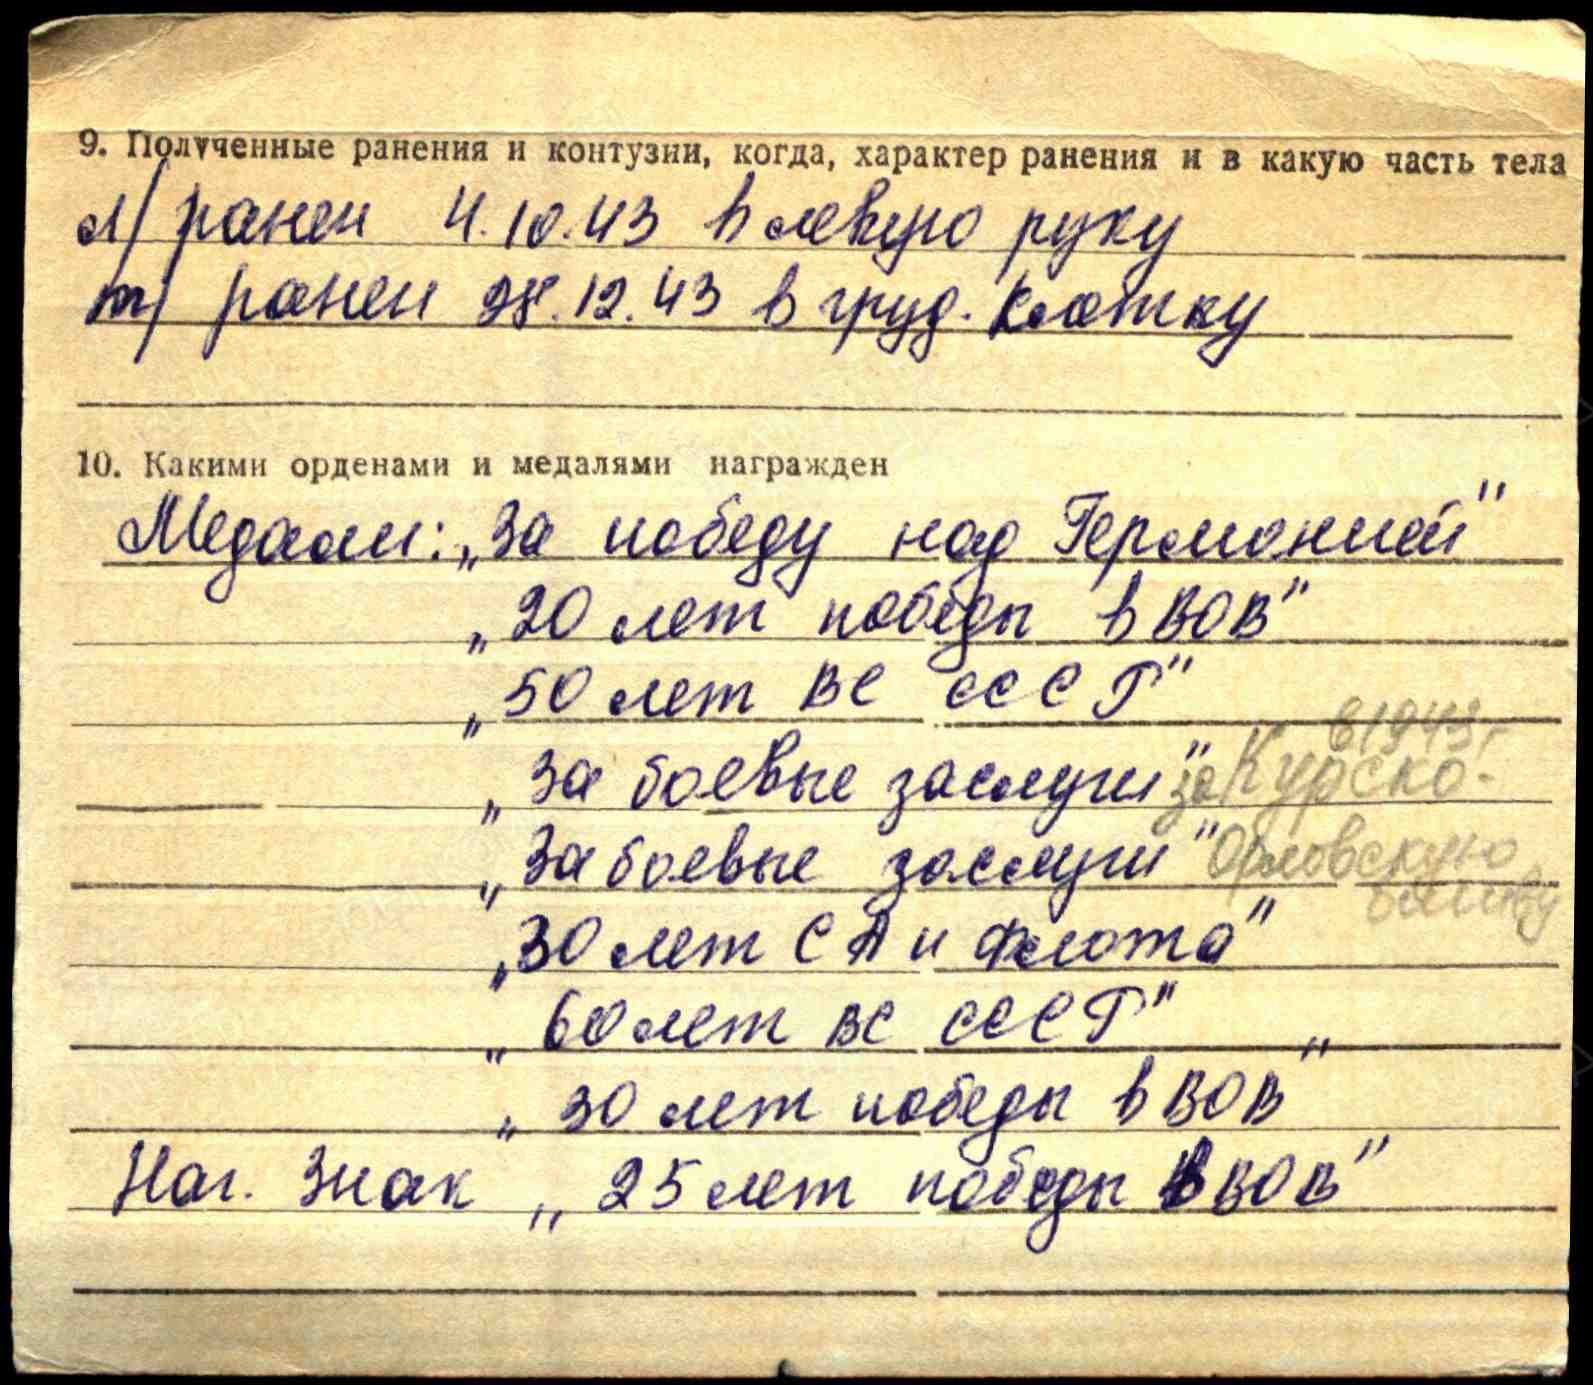 9. Полученные ранения и контузии, когда, характер ранения и в какую часть тела
л/ ранен 4.10.43 в левую руку
т/ ранен 28.12.43 в груд. клетку
10. Какими орденами и медалями награжден
Медали: „За победу над Германией"
„20 лет победы в ВОВ"
„50 лет ВС СССР"
в 1943 г
„За боевые заслуги" за Курско-
„За боевые заслуги" Орловскую
битву
„30 лет СА и Флота"
„60 лет ВС СССР"
„30 лет победы в ВОВ"
Наг. Знак „25 лет победы в ВОВ"